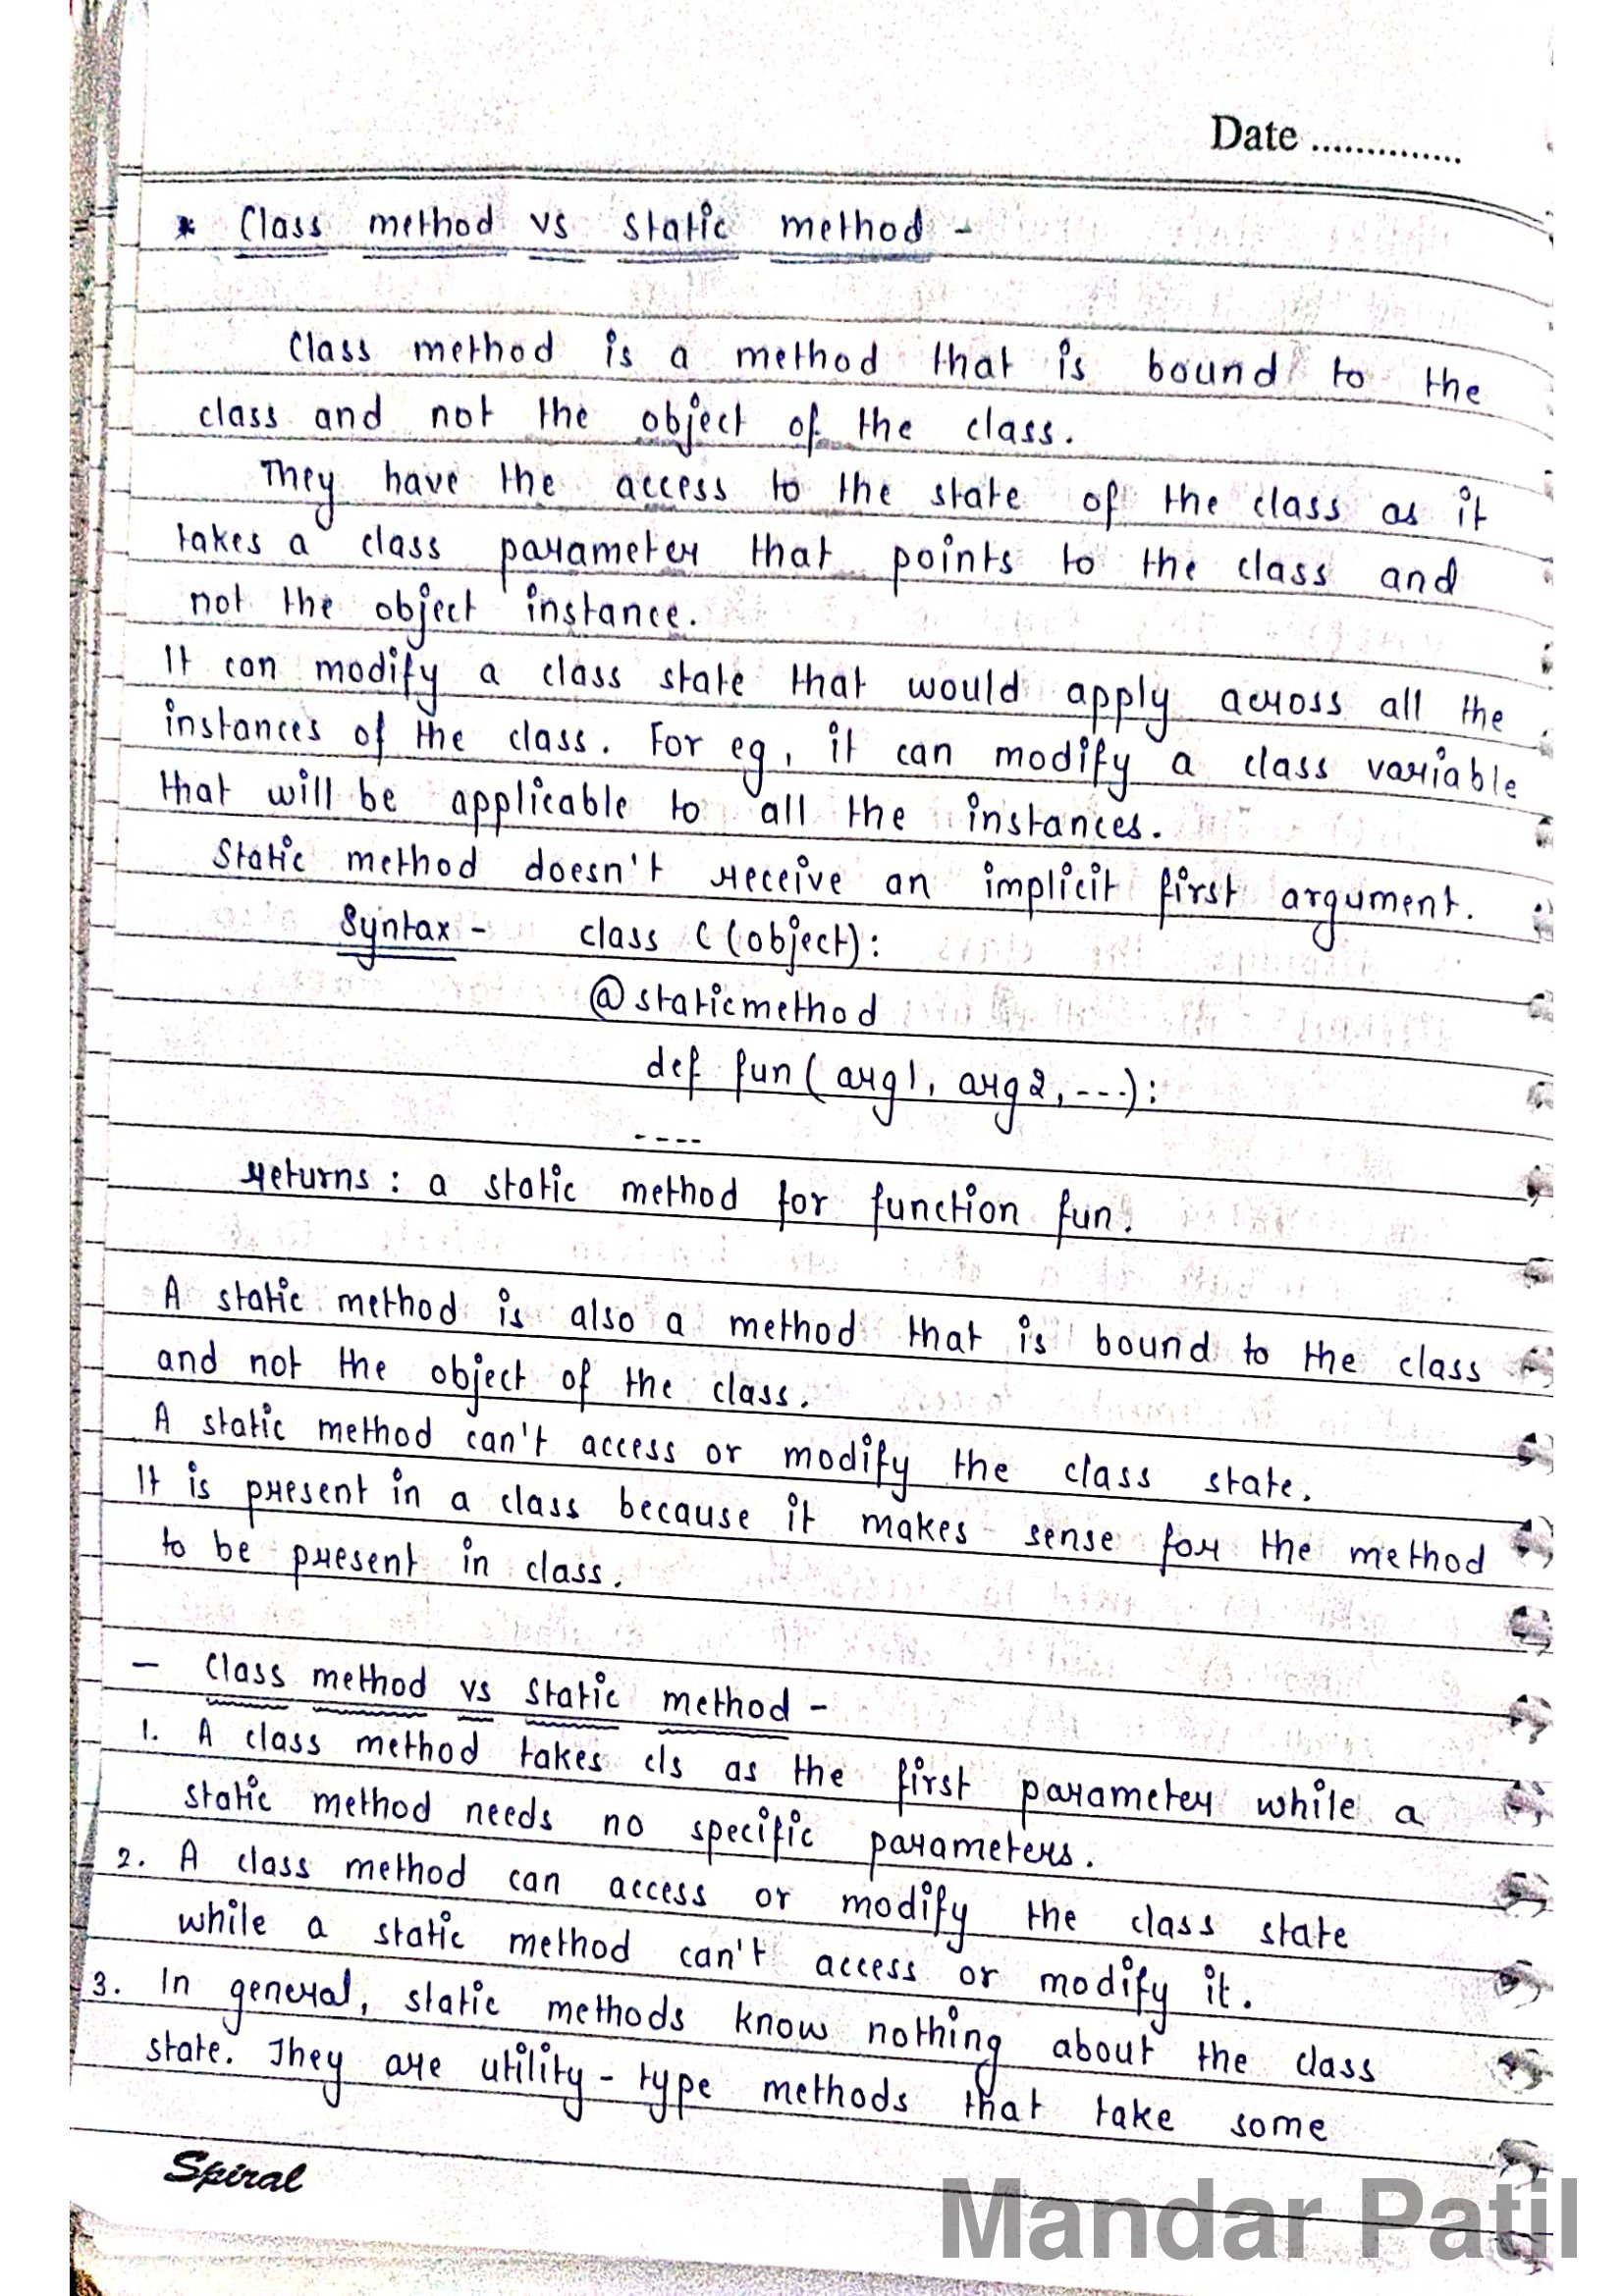 Date ..............
* Class method vs static method -
Class method is a method that is bound to the
class and not the object of the class.
They have the access to the state of the class as it
takes a class parameter that points to the class and
not the object instance.
It can modify a class state that would apply across all the
instances of the class. For eg, it can modify a class variable
that will be applicable to all the instances.
Static method doesn't receive an implicit first argument.
Syntax - class C(object):
@staticmethod
def fun(arg1, arg2, ---):
----
returns: a static method for function fun.
A static method is also a method that is bound to the class
and not the object of the class.
A static method can't access or modify the class state.
It is present in a class because it makes sense for the method
to be present in class.
- Class method vs static method -
1. A class method takes cls as the first parameter while a
static method needs no specific parameters.
2. A class method can access or modify the class state
while a static method can't access or modify it.
3. In general, static methods know nothing about the class
state. They are utility-type methods that take some
Spiral
Mandar Patil